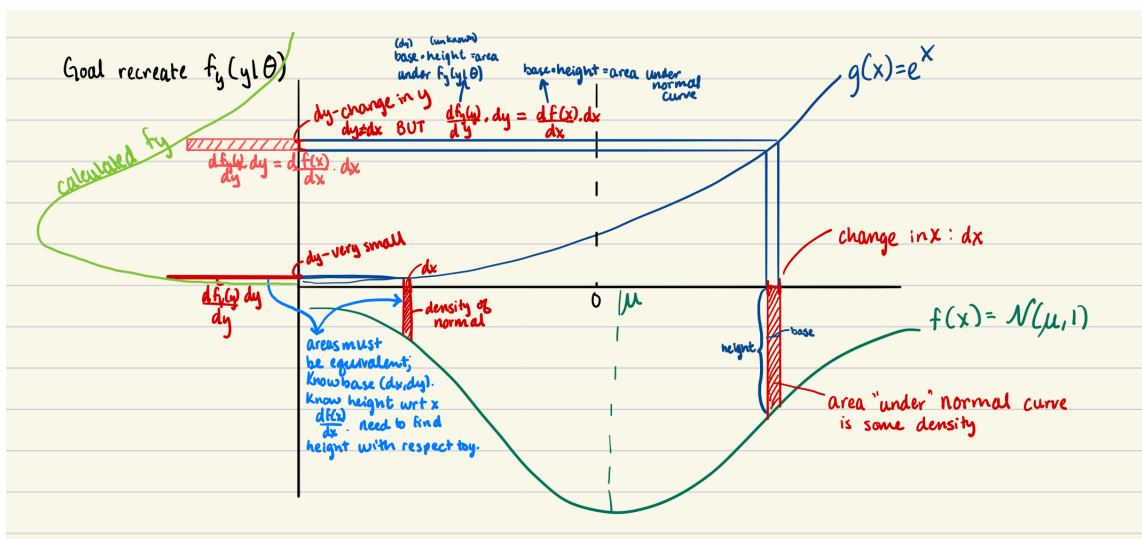 Goal recreate f_y(y|θ)
(dy) (unknown)
base·height = area
under f_y(y|θ)
base·height = area under
normal
curve
g(x)=e^x
dy-change in y
dy≠dx BUT df_y(y)/dy · dy = df(x)/dx · dx
calculated f_y
df_y(y)/dy · dy = df(x)/dx · dx
dy-very small
change in x : dx
dx
df_y(y)/dy dy
density of
normal
0
μ
f(x) = N(μ,1)
areas must
be equivalent;
Know base (dx,dy).
Know height wrt x
df(x)/dx. need to find
height with respect to y.
height
base
area "under" normal curve
is some density